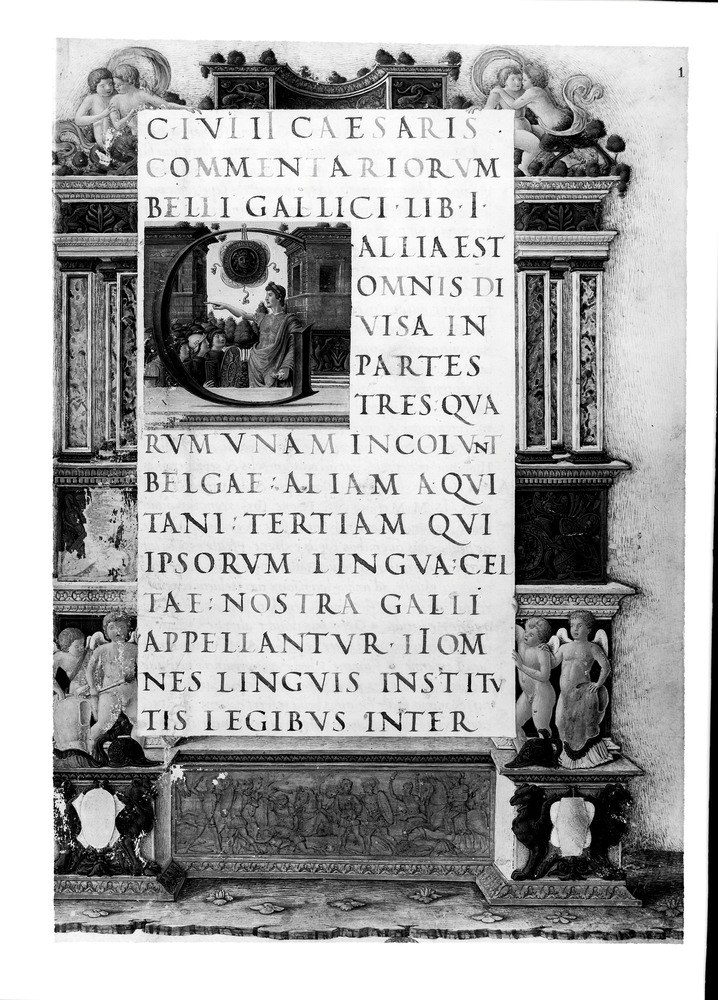 1
C·IVLII CAESARIS·
COMMENTARIORVM
BELLI GALLICI·LIB·I·
GALLIA EST
OMNIS DI
VISA IN
PARTES
TRES·QVA
RVM VNAM INCOLVNT
BELGAE:ALIAM AQVI
TANI:TERTIAM QVI
IPSORVM LINGVA:CEL
TAE:NOSTRA GALLI
APPELLANTVR·IIOM
NES LINGVIS INSTITV
TIS LEGIBVS INTER